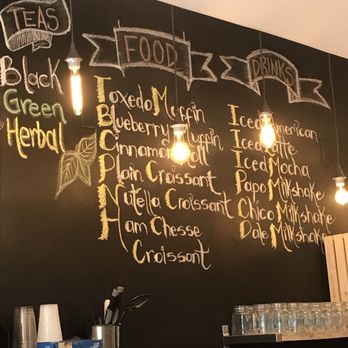 TEAS
Black
Green
Herbal
FOOD
Toxedo Muffin
Blueberry Muffin
Cinnamon Roll
Plain Croissant
Nutella Croissant
Ham Chesse
Croissant
DRINKS
Iced American
Iced Latte
Iced Mocha
Papo Milkshake
Chico Milkshake
Dale Milkshake